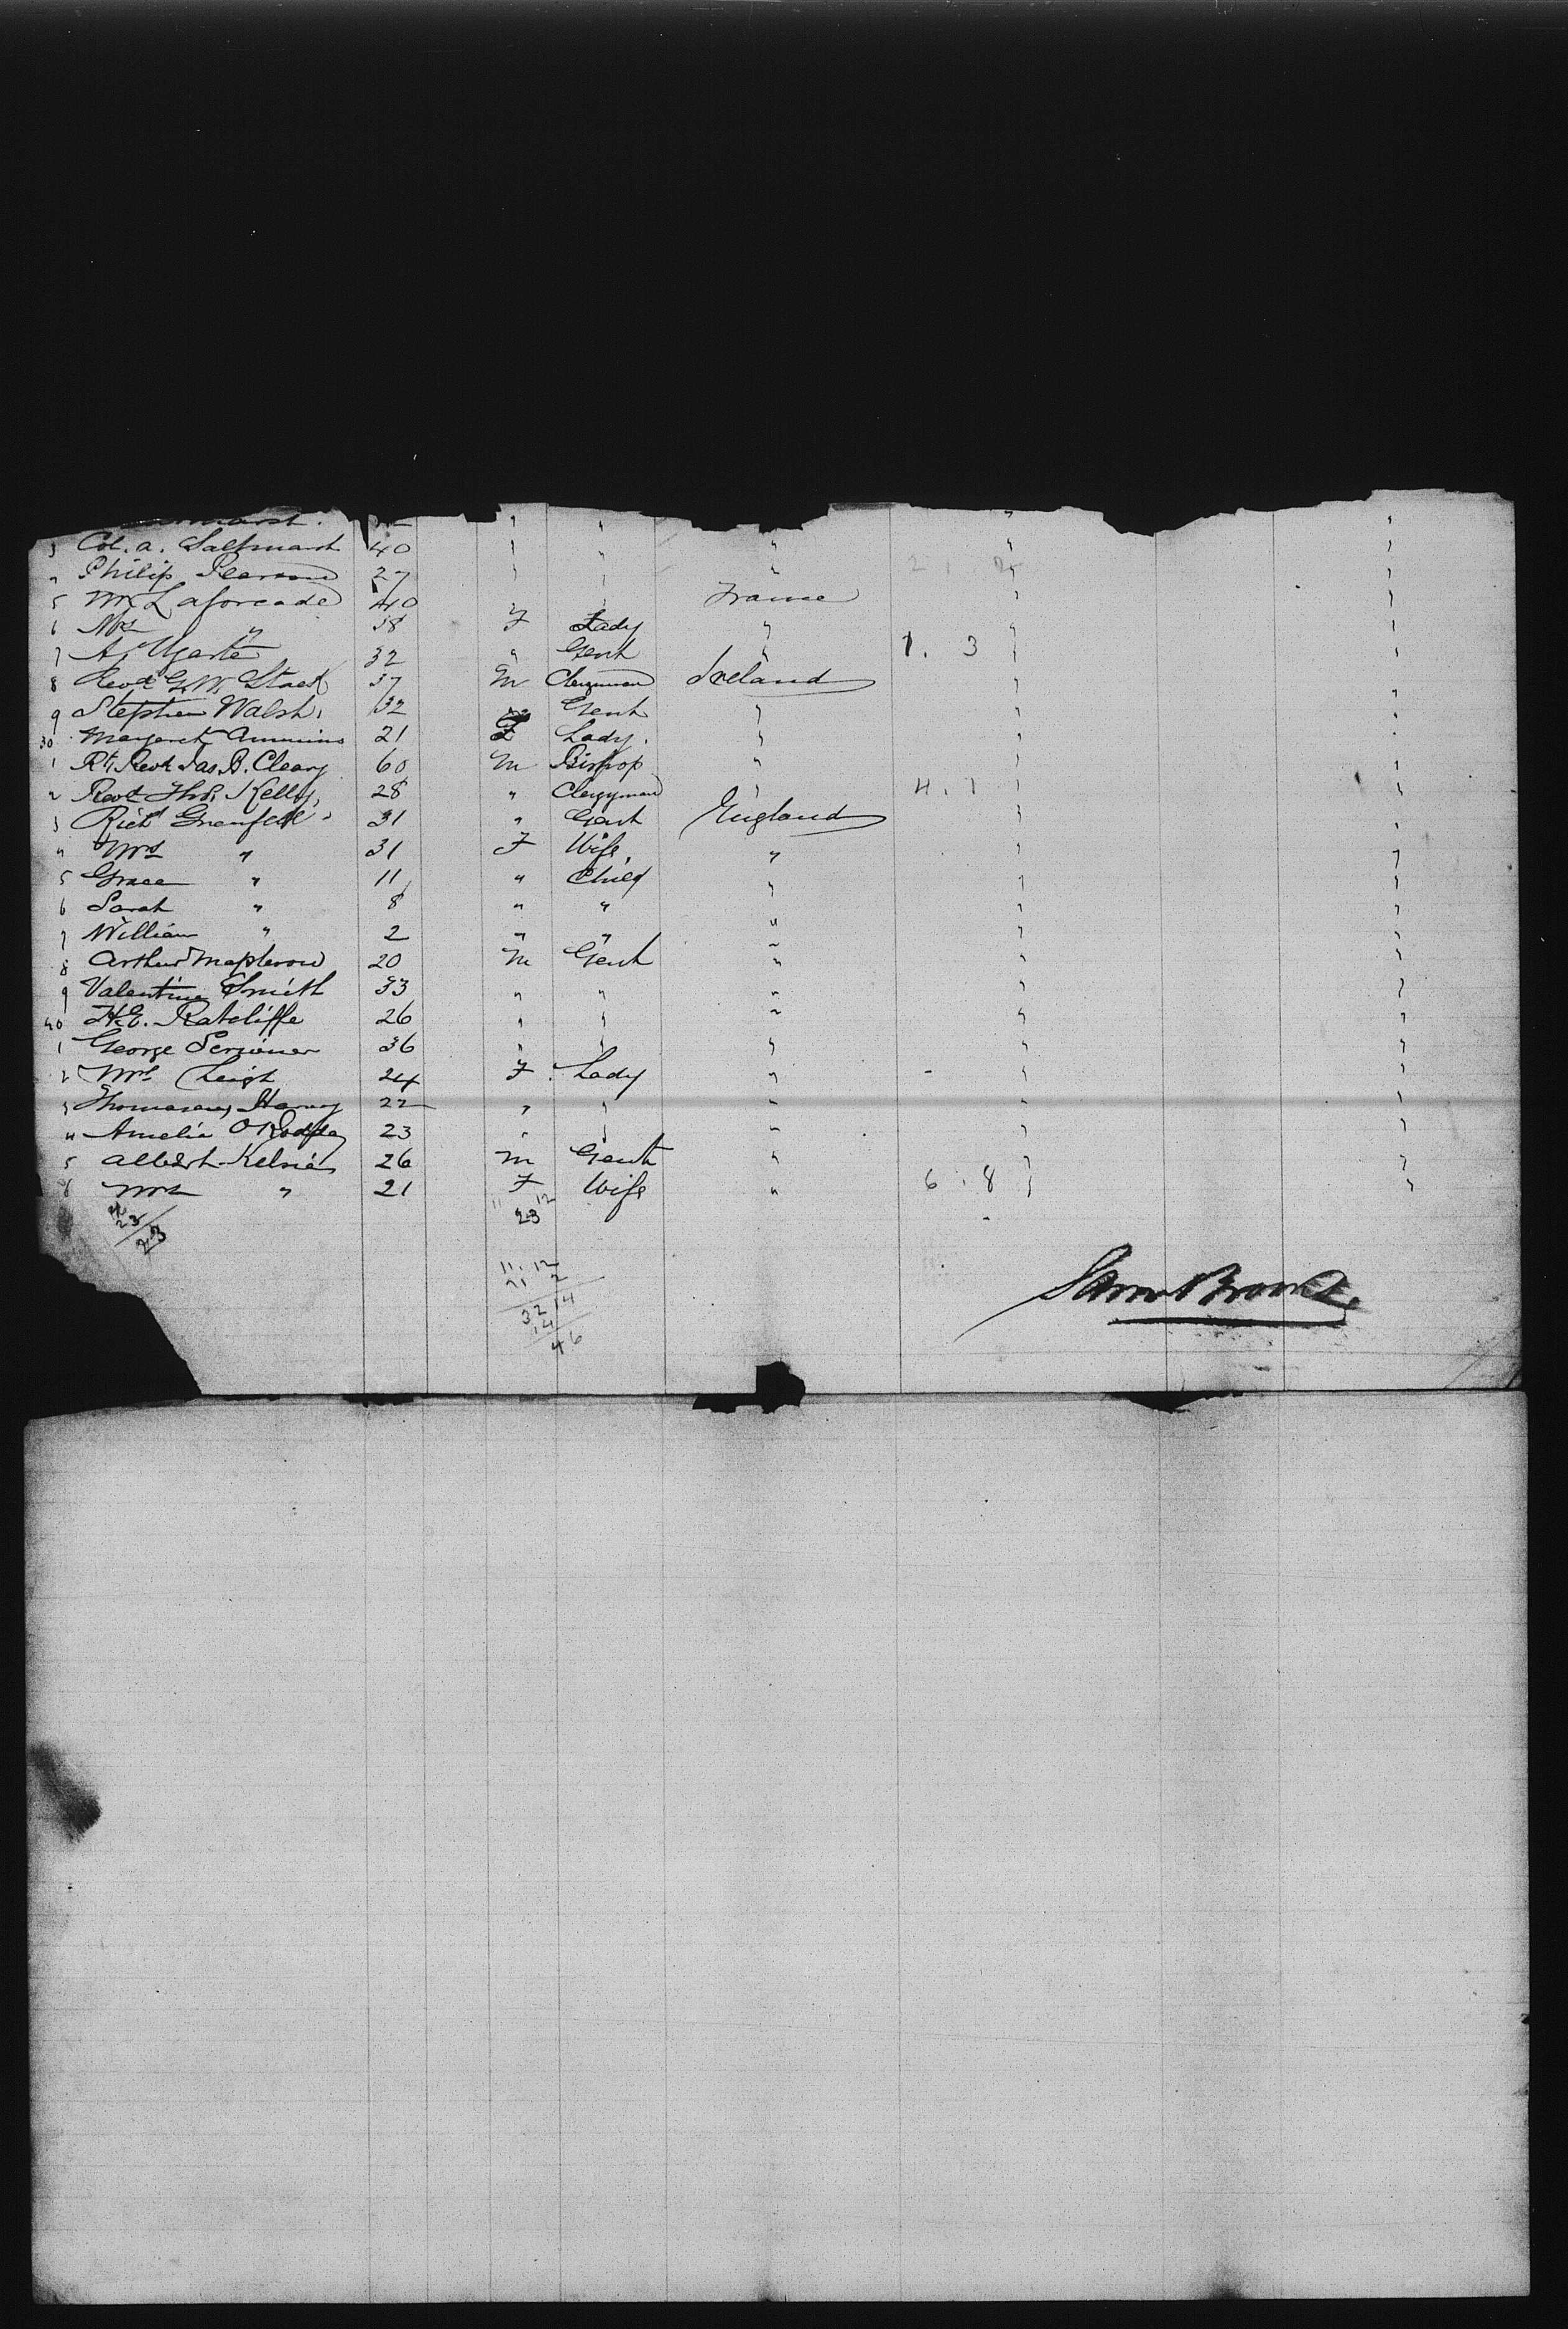 3 Col. A. Saltmarsh 40 " " "
" Philip 27 " " "
5 Mr Laforcade 40 " France "
6 Mrs " 38 F Lady " "
7 A. Ugarte 32 " Gent " 1. 3 "
8 Revd G. W. Stack 37 M Clergyman Ireland "
9 Stephen Walsh, 32 Gent " "
30 Margaret 21 F Lady. " "
1 Rt. Revd Jas. B. Cleary 60 M Bishop " "
2 Revd Thos. Kelly, 28 " Clergyman " 4. 1 "
3 Richd Grenfell 31 " Gent England "
" Mrs " 31 F Wife, " "
5 Grace " 11 " Child " "
6 Sarah " 8 " " " "
7 William " 2 " " " "
8 Arthur 20 M Gent " "
9 Valentine Smith 33 " " " "
40 H. E. Ratcliffe 26 " " " "
1 George Scrivener 36 " " " "
2 Mrs Leigh 24 F. Lady " "
3 Harvey 22 " " " "
4 Amelia 23 " " " "
5 Albert 26 M Gent " "
6 Mrs " 21 F Wife " 6. 8 "
11 12
23
23
23
11. 12
21 2
32 14
14
46